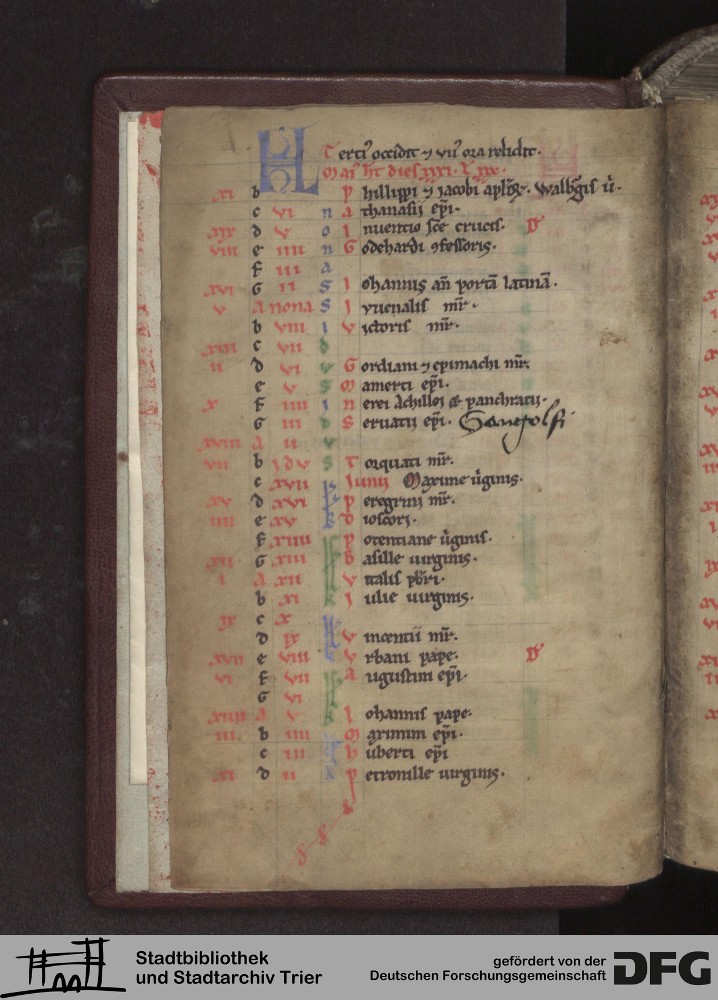 KL Terci᷒ occidit ⁊ vii᷒ ora relidit.
Mai᷒ ht dies xxxi. l. xxx.
xi b Phillippi ⁊ Jacobi aplōꝝ. Walbgis ṽ.
c vi n Athanasii ep̄i.
xix d v o Inuentio sc̄e crucis. D
viii e iiii n Godehardi ꝯfessoris.
f iii a
xvi G ii s Iohannis an̄ portā latinā.
v a nona s Iuuenalis mr̄.
b viii i Victoris mr̄.
xiii c vii d
ii d vi v Gordiani ⁊ epimachi mr̄.
e v s Mamerti ep̄i.
x f iiii i Nerei Achillei & panchratij.
G iii d Seruatij ep̄i. Gangolfi
xviii a ii v
vii b idv s Torquati mr̄.
c xvii Iunij Maxime ũginis.
xv d xvi k Peregrini mr̄.
iiii e xv Dioscori.
f xiiii Potentiane ũginis.
xii G xiii Basille uirginis.
i a xii Vitalis pb̄ri.
b xi Iulie uirginis.
ix c x
d ix Vincentii mr̄.
xvii e viii Vrbani pape. D
vi f vii Augustini ep̄i.
G vi
xiiii a v Iohannis pape.
iii b iiii Maximini ep̄i.
c iii Huberti ep̄i
xi d ii Petronille uirginis.
Stadtbibliothek
und Stadtarchiv Trier
gefördert von der
Deutschen Forschungsgemeinschaft
DFG